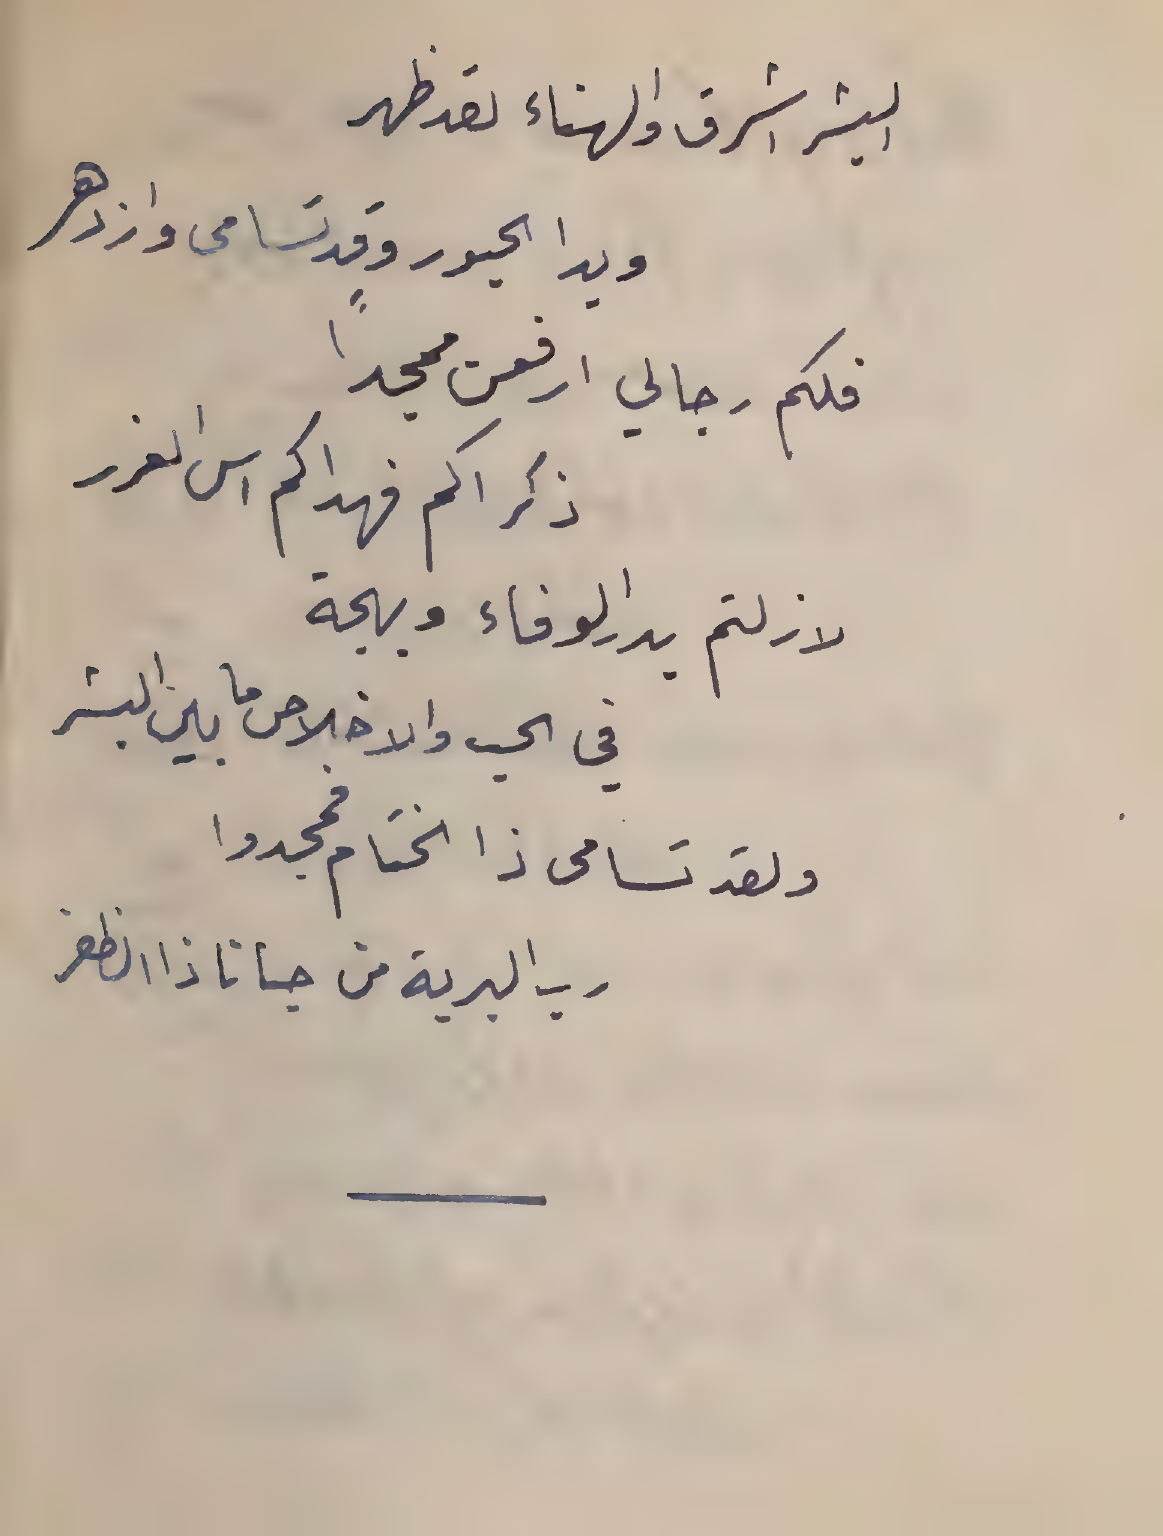 البشر اشرق والهناء لقد ظهر
وبدا الحبور وقد تسامى وازدهر
فلكم رجالي ارفعن ممجداً
ذكراكم فهداكم اس الغرر
لازلتم بدر الوفاء وبهجة
في الحب والاخلاص ما بين البشر
ولقد تسامى ذا الختام فمجدوا
رب البرية من حبانا ذا الظفر